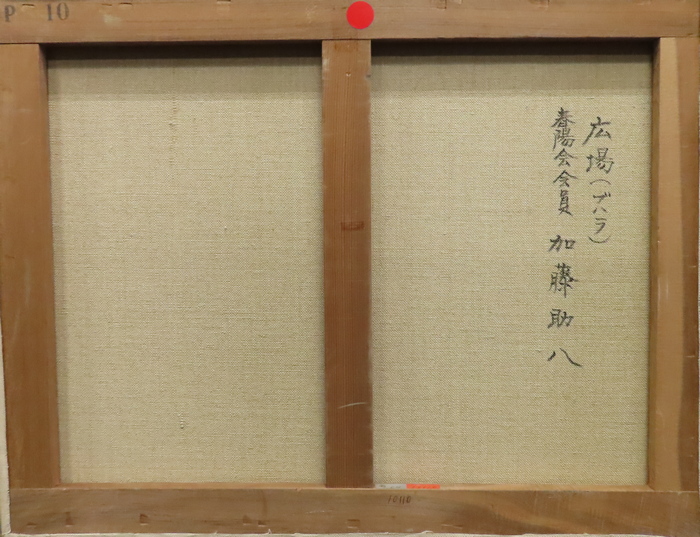 P 10
広場(バラ)
春陽会会員 加藤助八
10110